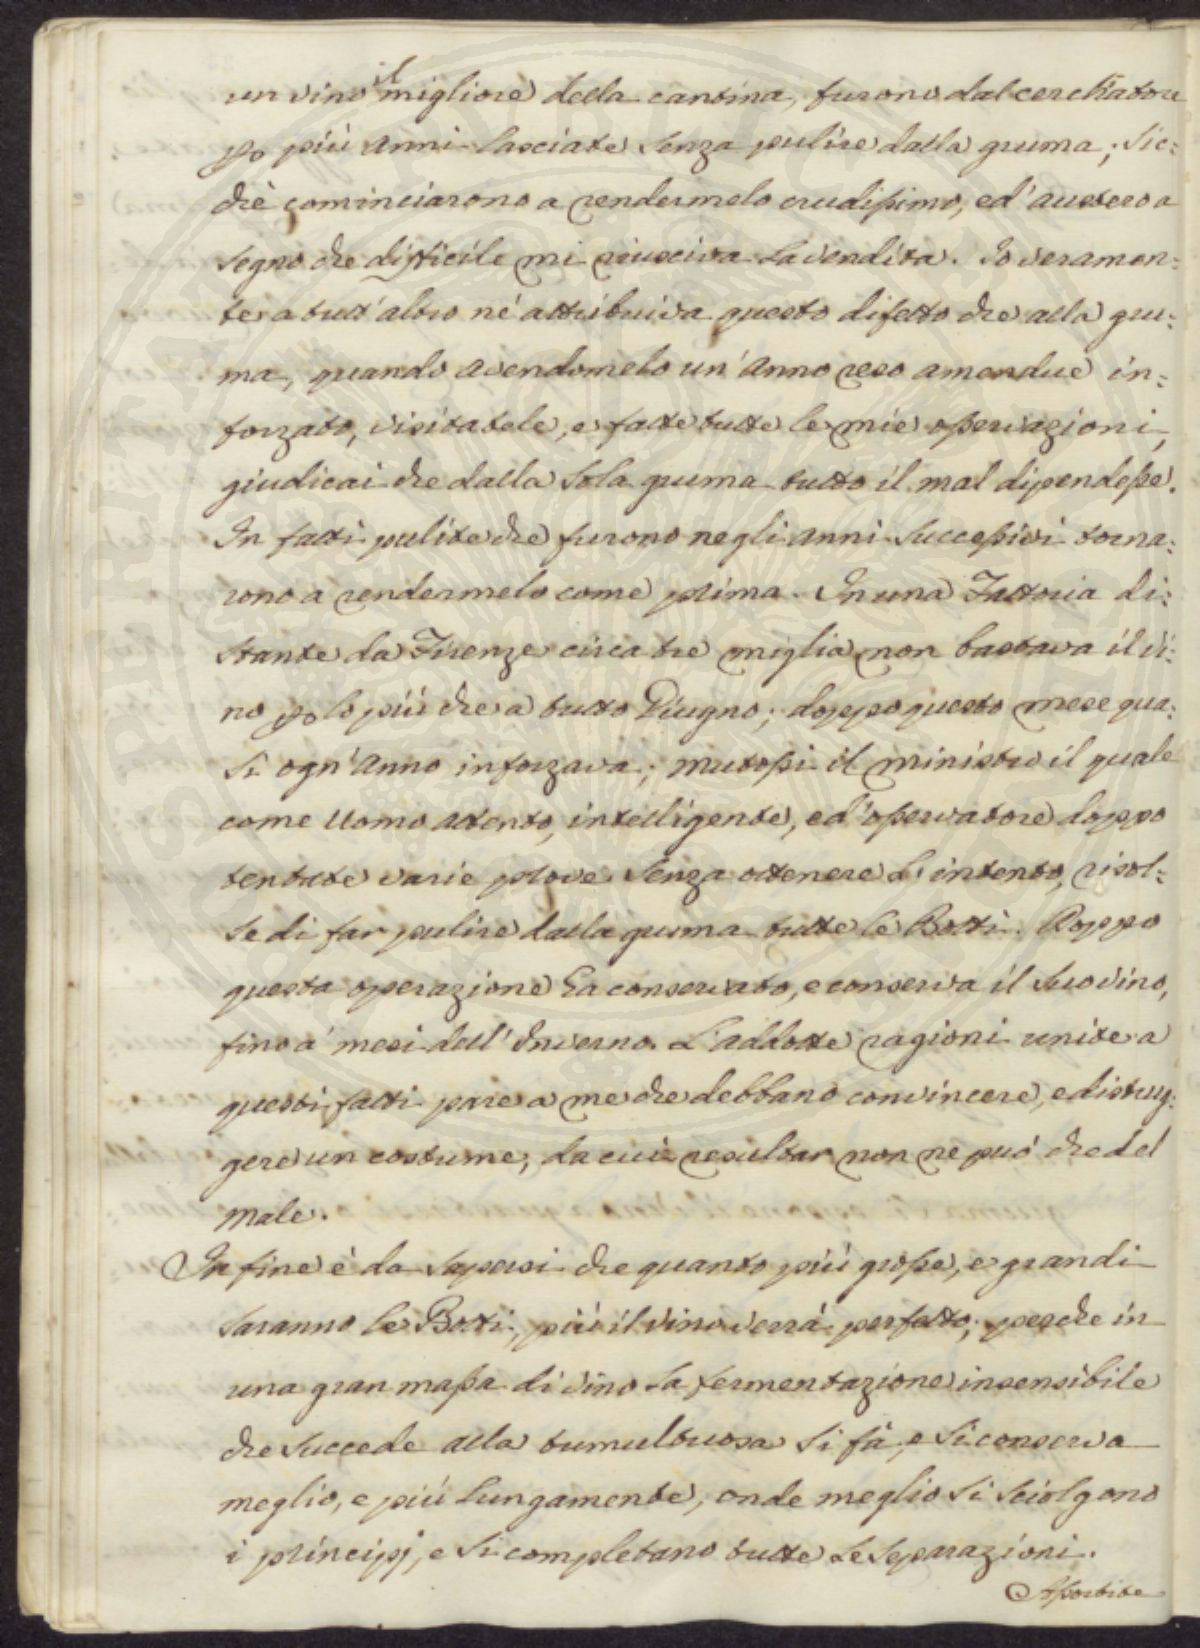 un vino il migliore della cantina, furono dal cerchiatore
p più Anni lasciate senza pulire dalla gruma; sic=
chè cominciarono a rendermelo crudissimo, ed' austero a
segno che difficile mi riusciva la vendita. Io veramen=
te a tutt'altro né attribuiva questo difetto che alla gru=
ma, quando avendomelo un'Anno reso amendue in=
forzato, visitatele, e fatte tutte le mie osservazioni,
giudicai che dalla sola gruma tutto il mal dipendesse.
In fatti pulite che furono negli Anni successivi torna=
rono a rendermelo come prima. In una Fattoria di=
stante da Firenze circa tre miglia non bastava il vi=
no p lo più che a tutto Giugno; doppo questo mese qua=
si ogn'Anno inforzava; mutossi il ministro il quale
come Uomo attento, intelligente, ed'osservatore doppo
tentate varie prove senza ottenere l'intento, risol=
se di far pulire dalla gruma tutte le Botti. Doppo
questa operazione ha conservato, e conserva il suo vino,
fino a' mesi dell'Inverno. L'addotte ragioni unite a
questi fatti pare a me che debbano convincere, e distrug=
gere un costume, da cui resultar non ne può che del
male.
In fine è da sapersi che quanto più grosse, e grandi
saranno le Botti, più il vino verrà perfetto; perche in
una gran massa di vino la fermentazione insensibile
che succede alla tumultuosa si fà, e si conserva
meglio, e più lungamente, onde meglio si sciolgono
i principj, e si completano tutte le separazioni.
Assortite